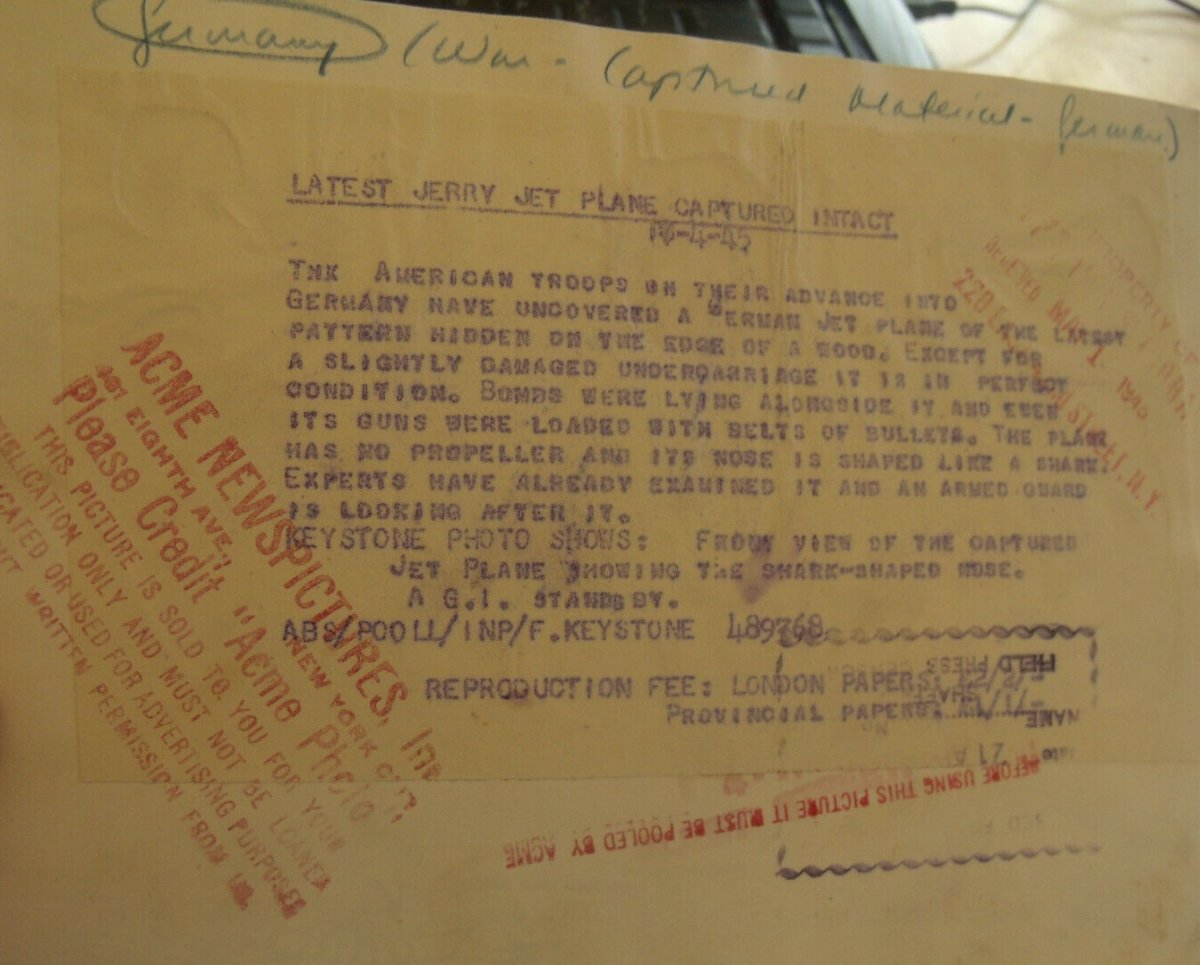 Germany (War - Captured Material - German)
LATEST JERRY JET PLANE CAPTURED INTACT
-4-45
THE AMERICAN TROOPS ON THEIR ADVANCE INTO
GERMANY HAVE UNCOVERED A GERMAN JET PLANE OF THE LATEST
PATTERN HIDDEN ON THE EDGE OF A WOOD. EXCEPT FOR
A SLIGHTLY DAMAGED UNDERCARRIAGE IT IS IN PERFECT
CONDITION. BOMBS WERE LYING ALONGSIDE IT AND EVEN
ITS GUNS WERE LOADED WITH BELTS OF BULLETS. THE PLANE
HAS NO PROPELLER AND ITS NOSE IS SHAPED LIKE A SHARK.
EXPERTS HAVE ALREADY EXAMINED IT AND AN ARMED GUARD
IS LOOKING AFTER IT.
KEYSTONE PHOTO SHOWS: FRONT VIEW OF THE CAPTURED
JET PLANE SHOWING THE SHARK-SHAPED NOSE.
A G.I. STANDS BY.
ABS/POOLL/INP/F.KEYSTONE 489768
REPRODUCTION FEE: LONDON PAPERS:
PROVINCIAL PAPERS:
PROPERTY OF
MAY 1 1945
220 STREET, N.Y
ACME NEWSPICTURES, Inc
461 EIGHTH AVE., NEW YORK CITY
Please Credit "Acme Photo
THIS PICTURE IS SOLD TO YOU FOR YOUR
PUBLICATION ONLY AND MUST NOT BE LOANED
OR USED FOR ADVERTISING PURPOSES
WRITTEN PERMISSION FROM US.
FIELD PRESS
NAME
Date 21 A
BEFORE USING THIS PICTURE IT MUST BE POOLED BY ACME